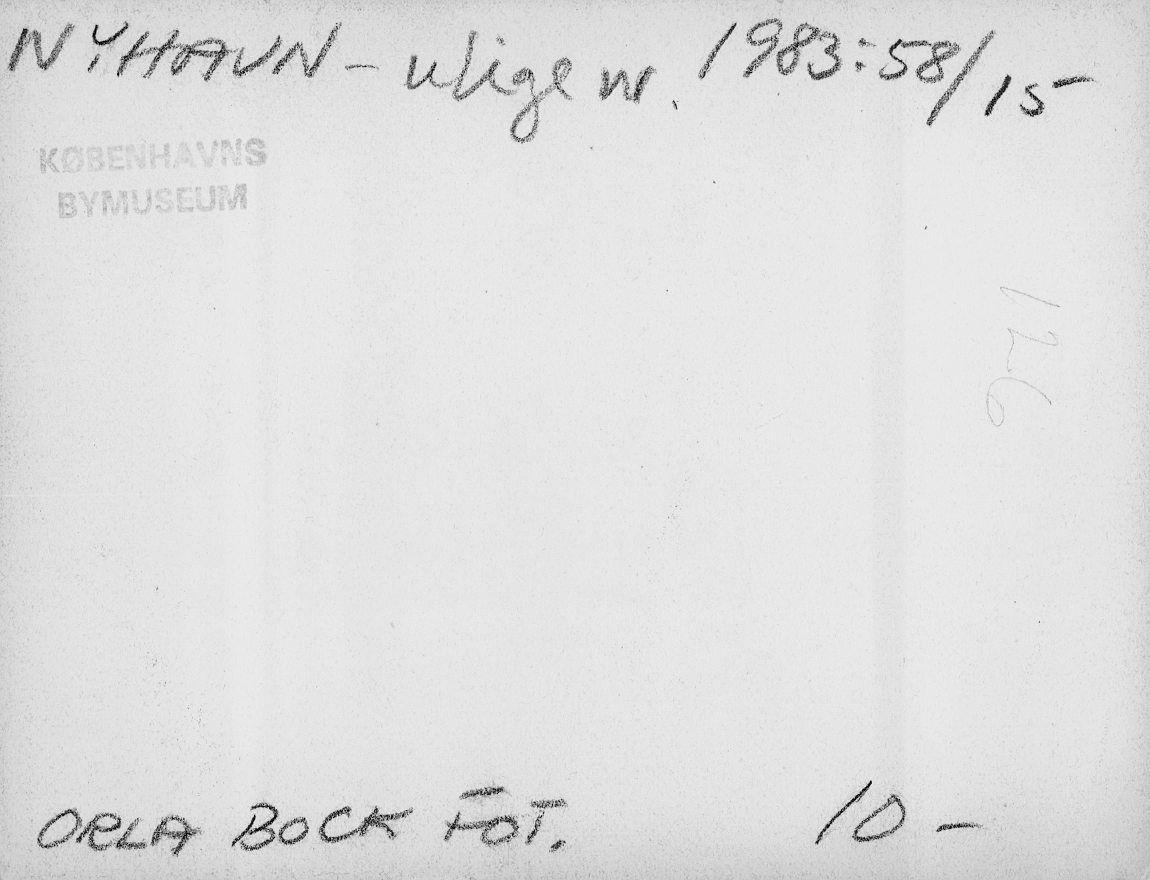 NYHAVN - ulige nr. 1983:58/15
KØBENHAVNS
BYMUSEUM
126
ORLA BOCK FOT. 10 -